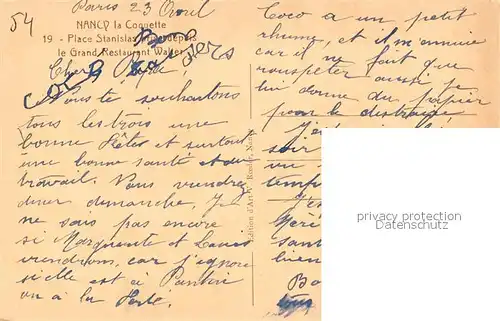 54
Paris 23 Avril
NANCY la Coquette
19 - Place Stanislas
le Grand Restaurant Walter
Nous te souhaitons
tous les trois une
bonne fêtes et surtout
une bonne santé et du
travail. Vous viendrez
diner dimanche, je
ne sais pas encore
si Marguerite et Louis
viendrons, car j'ignore
si elle est à Pantin
ou a la
Edition d'Art
Coco a un petit
rhume, et il m'ennuie
car il ne fait que
rouspéter aussi je
lui donne du papier
pour le distraire
soir
vu
temp
sant
bien
privacy protection
Datenschutz